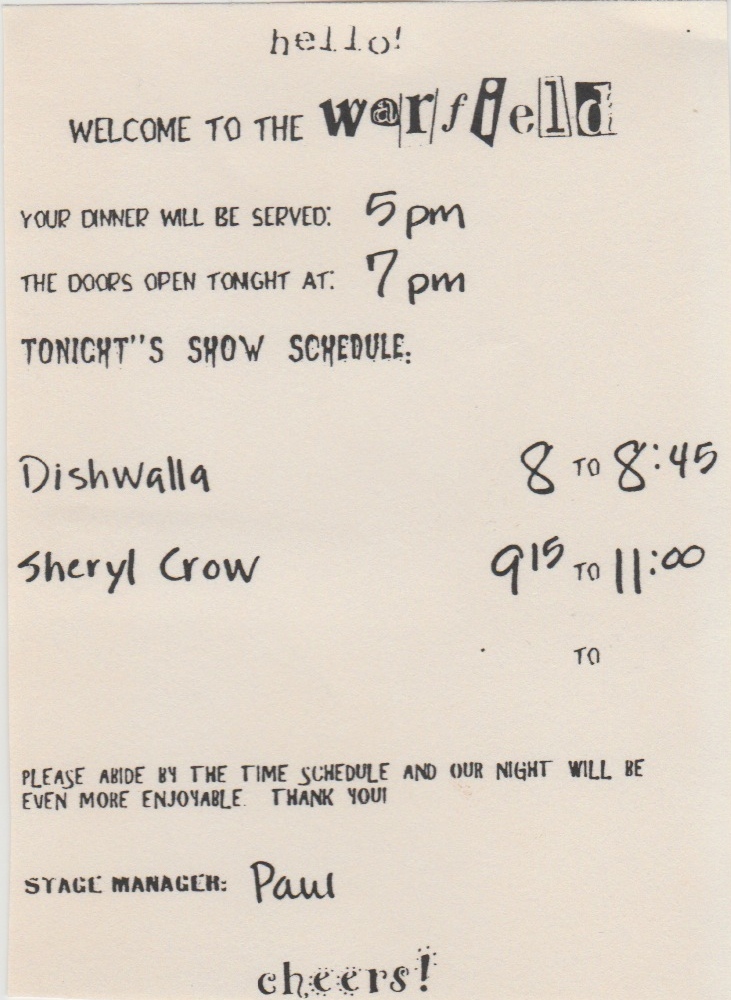 hello!
WELCOME TO THE warfield
YOUR DINNER WILL BE SERVED: 5pm
THE DOORS OPEN TONIGHT AT: 7pm
TONIGHT''S SHOW SCHEDULE:
Dishwalla 8 TO 8:45
Sheryl Crow 9 15 TO 11:00
TO
PLEASE ABIDE BY THE TIME SCHEDULE AND OUR NIGHT WILL BE
EVEN MORE ENJOYABLE. THANK YOU!
STAGE MANAGER: Paul
cheers!